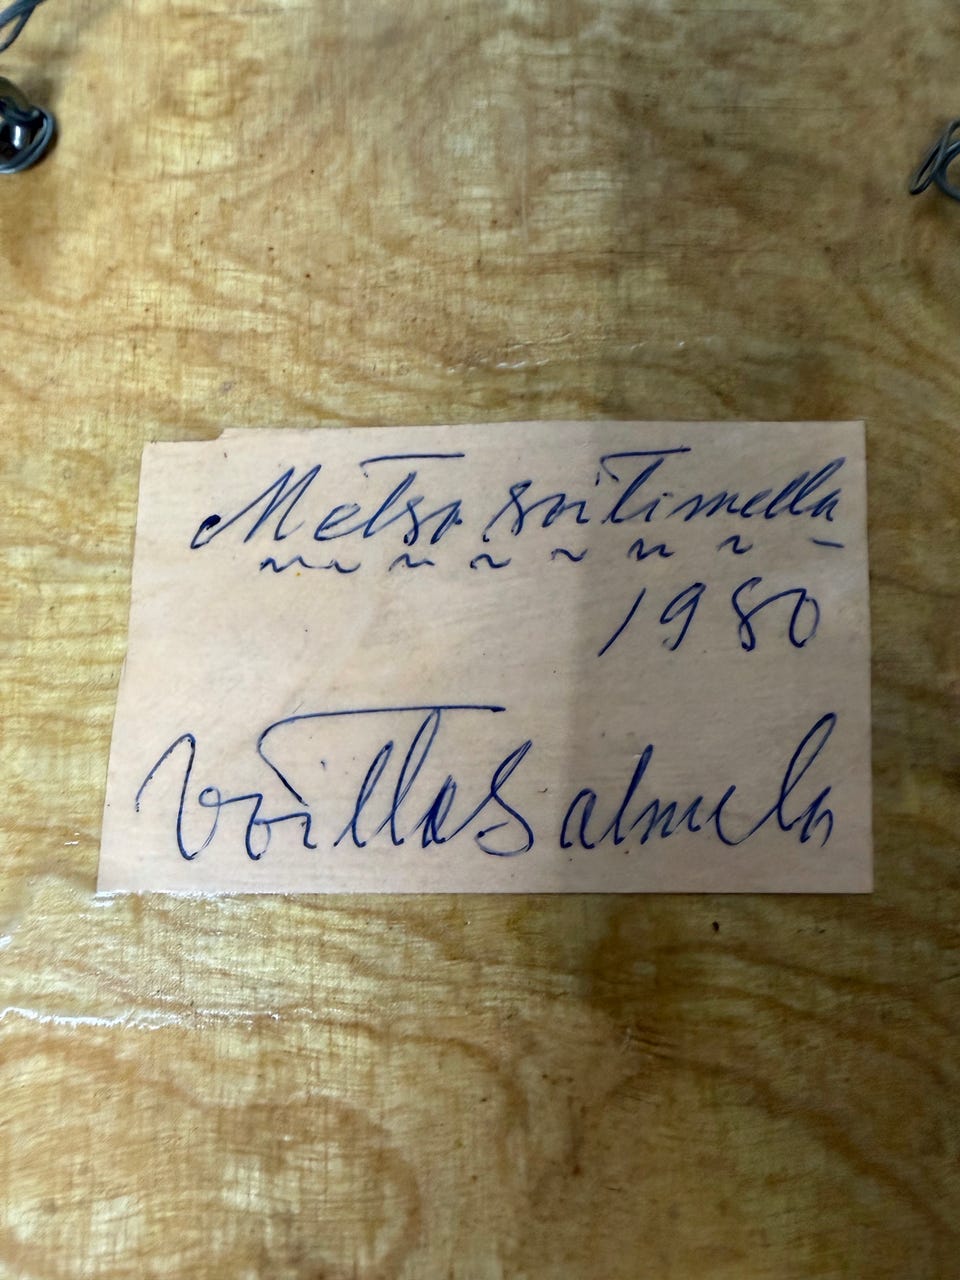 Metso soitimella
1980
Voitto Salmela